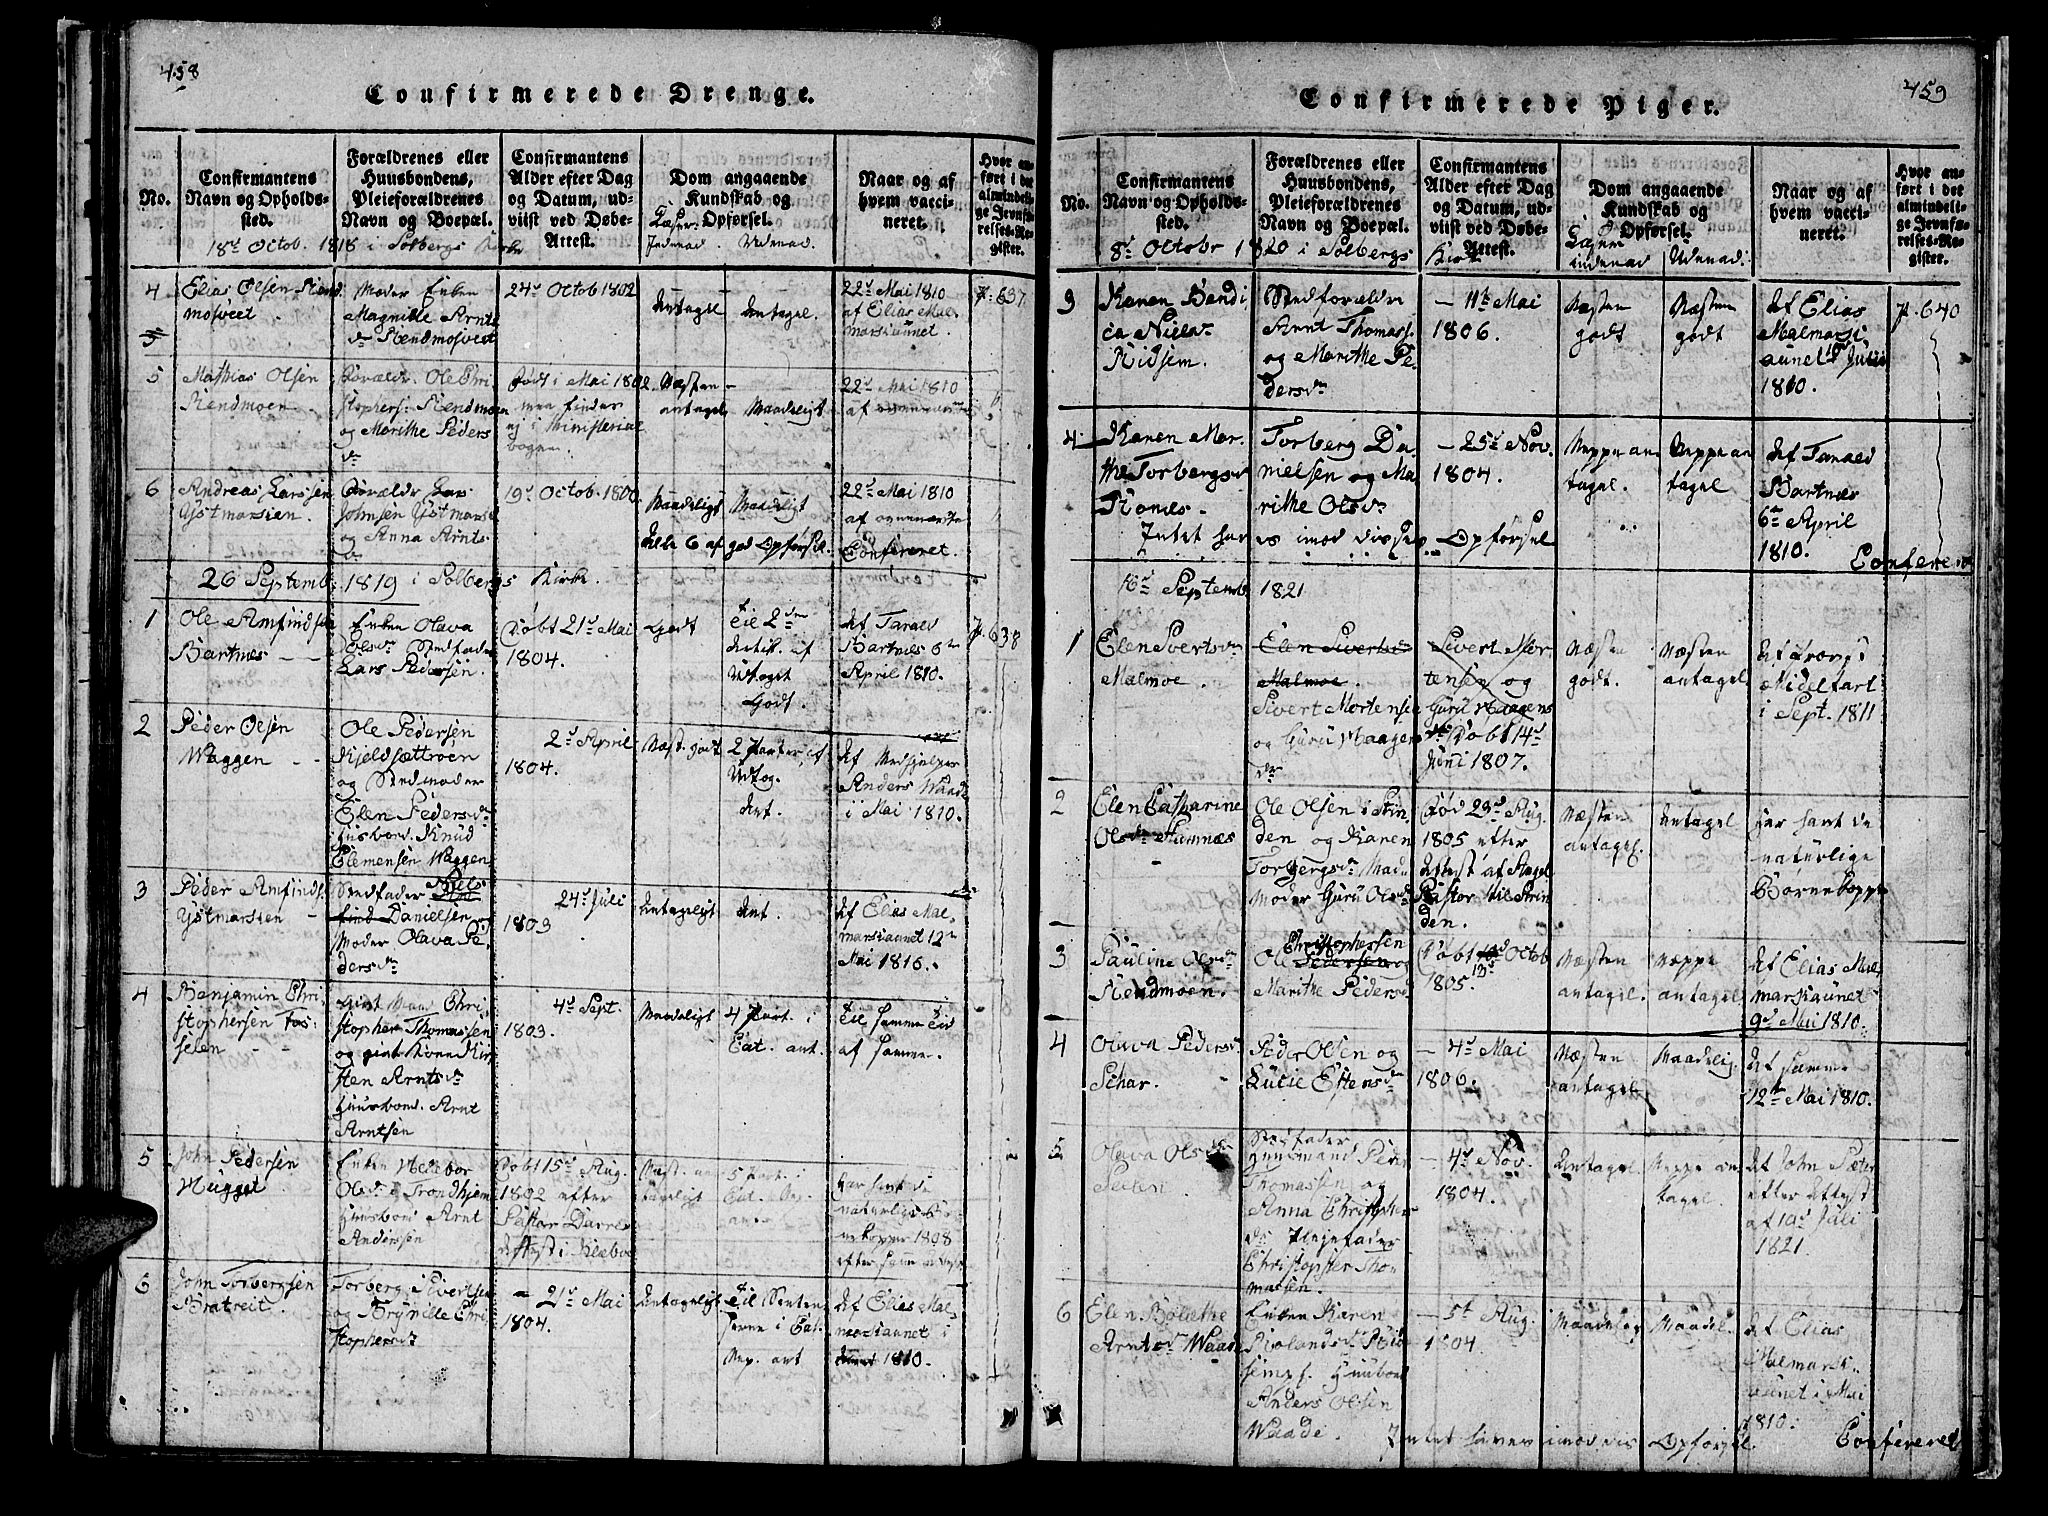 458
Confirmerede Drenge.
No.
Confirmantens
Navn og Opholds-
sted.
Forældrenes eller
Huusbondens,
Pleieforældrenes
Navn og Boepæl.
Confirmantens
Alder efter Dag
og Datum, ud-
viist ved Døbe-
Attest.
Dom angaaende
Kundskab og
Opførsel.
Indenad. Udenad.
Naar og af
hvem vacci-
neret.
Hvor an-
ført i det
almindeli-
ge Jevnfø-
relses-Re-
gister.
18d Octob. 1818 i Solbergs Kirke
4
Elias Olsen
Moder Enken
Magnille Arnts
24d Octob 1802
Antagel
Antagel.
22d Mai 1810
af Elias Mal-
marsiaunet.
p. 637
5
Mathias Olsen
Rendmoen
Forældr. Ole Chri-
stophers. Rendmoen
og Marithe Peders
Født i Mai 1802.
men findes
ej i Ministerial
bogen.
Næsten
antagel
Maadeligt
22d Mai 1810
af
6
Andreas Larssen
Ystmarsien.
Forældr. Lars
Johnsen Ystmars.
og Anna Arnts
19d Octob. 1800
Maadeligt
Maadeligt
22d Mai 1810
af ovennævnte
Alle 6 af god Opførsel.
Confereret.
26 Septemb. 1819 i Solbergs Kirke.
1
Ole Amfindsen
Bartnes
Enken Olava
Olsdr Stedfader
Lars Pedersen.
Døbt 21d Mai
1804.
Godt
til 2den
Artik. af
Udtoget
Godt.
Af Tarald
Bartnes 6te
April 1810.
p. 638
2
Peder Olsen
Waggen
Ole Pedersen
Kjeldsættroen
og Stedmoder
Elen Pedersdr
Husbond. Knud
Clemensen Waggen
2d April
1804.
Næst. godt
2 Parter af
Udtog.
Ant.
Af Medhjelper
Anders Waade
i Mai 1810.
3
Peder Amfinds.
Ystmarsien
Stedfader Niels
Danielsen og
Moder Olava Pe-
dersdr
24d Juli
1803
Antageligt
Ant.
Af Elias Mal-
marsiaunet 12te
Mai 1816.
4
Benjamin Chri-
stophersen Fos-
seien
Gift Mand Chri-
stopher Thomassen
og gift Kone Kir-
sten Arntsdr
Huusbond. Arnt
Arntsen
4d Sept.
1803.
Maadeligt
4 Part. i
Cat. ant.
Til samme Tid
af samme.
5
John Pedersen
Hugget
Enken Helebor
Olsdr i Trondhjem
Huusbond Arnt
Anderssen
Døbt 15d Aug.
1802 efter
Pastor Darres
Attest i Klebo
Næst. an-
tageligt
5 Part. i
Cat.
ant.
Har havt de
naturlige Bø-
nekopper 1808
efter samme Attest
6
John Torbergsen
Bratreit.
Torberg Sivertsen
og Brynille Chri-
stophersdr
— 21d Mai
1804.
Antageligt
Til Senten-
serne i Cat.
ant
Af Elias Mal-
marsiaunet i
1810.
459
Confirmerede Piger.
No.
Confirmantens
Navn og Opholds-
sted.
Forældrenes eller
Huusbondens,
Pleieforældrenes
Navn og Boepæl.
Confirmantens
Alder efter Dag
og Datum, ud-
viist ved Døbe-
Attest.
Dom angaaende
Kundskab og
Opførsel.
indenad Udenad.
Naar og af
hvem vacci-
neret.
Hvor an-
ført i det
almindeli-
ge Jevnfø-
relses-Re-
gister.
8d Octobr 1820 i Solbergs Kirke
3
Karen Bendi
Stedforældre
Arnt Thomass.
og Marithe Pe-
dersdr
— 11te Mai
1806.
Næsten
godt
Næsten
godt
Af Elias
Malmarsi-
aunet Julii
1810.
p. 640
4
Karen Mar-
the Torbergsdr
Torberg Da-
nielsen og Ma-
rithe Olsdr
— 25d Nov.
1804.
Neppe an-
tagel.
Neppe an-
tagel
Af Tarald
Bartnes
6te April
1810.
Intet haves imod disses Opførsel
Confereret
16d Septemb. 1821
1
Elen Sivertsdr
Malmoe.
Elen Sivertsdr
Malmoe.
Sivert Mortensen
og Guru Haagens
dr
Sivert Mor-
tensen og
Guru Haagens
dr Døbt 14d
Juni 1807.
Næsten
godt.
Næsten
antagel.
Af
Midelfart
i Sept. 1811
2
Elen Catharine
Olsdr Humnæs
Ole Olsen i Strin-
den og Karen
Torbergsdr Mad-
moder Guru Olsdr
Død 23d Aug.
1805 efter
Attest af Angel
Pastor til Strin-
den.
Næsten
antagel.
Antagel
Har havt de
naturlige
Børnekopper
3
Pauline Olsdr
Rendmoen.
Christophersen
Ole Pedersen og
Marithe Pedersdr
Døbt 13d Octob
1805.
Næsten
antagel.
Neppe
antagel
Af Elias Mal-
marsiaunet
9d Mai 1810.
4
Olava Pedersdr
Schar.
Peder Olsen og
Lucie Estensdr
— 4d Mai
1806.
Næsten
antagel
Maadelig
Af samme
12te Mai 1810.
5
Olava Olsdr
Stedfader
Huusmand Peder
Thomassen og
Anna Christopher
dr Plejefader
Christopher Tho-
massen.
— 4d Nov.
1804.
Antagel
Neppe an-
tagel.
Af John Sæter
efter Attest
af 10d Juli
1821.
6
Elen Bolethe
Arntsdr Waade
Enken Karen
Anders Olsen
Waade.
— 5t Aug.
1804.
Maadelig
Maadel.
Af Elias
Malmarsi-
aunet i Mai
1810.
Intet haves imod dis Opførsel.
Confereret